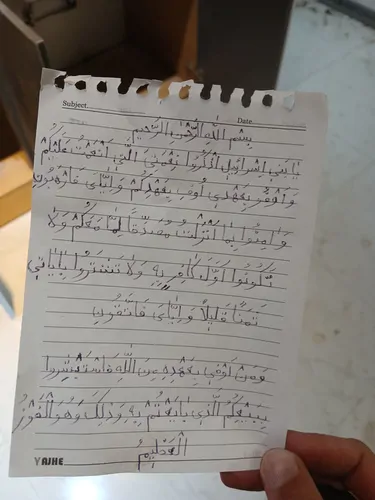 Subject
Date
بسم الله الرحمن الرحيم
يا بني اسرائيل اذكروا نعمتي التي انعمت عليكم
واوفو بعهدي اوف بعهدكم وإياي فارهبون
وءامنوا بما انزلت مصدقا لما معكم ولا
تكونوا اول كافر به ولا تشتروا بآياتي
ثمنا قليلا وإياي فاتقون
ومن اوفى بعهده من الله فاستبشروا
ببيعكم الذي بايعتم به وذلك هو الفوز
العظيم
YAJHE